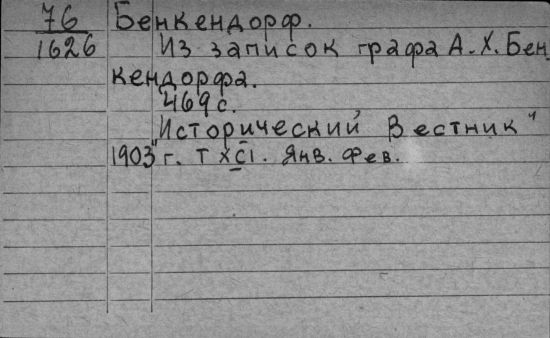 76 Бенкендорф.
1626 Из записок графа А. Х. Бен
кендорфа.
469 с.
Исторический Вестник"
1903" г. Т XCI. Янв. Фев.